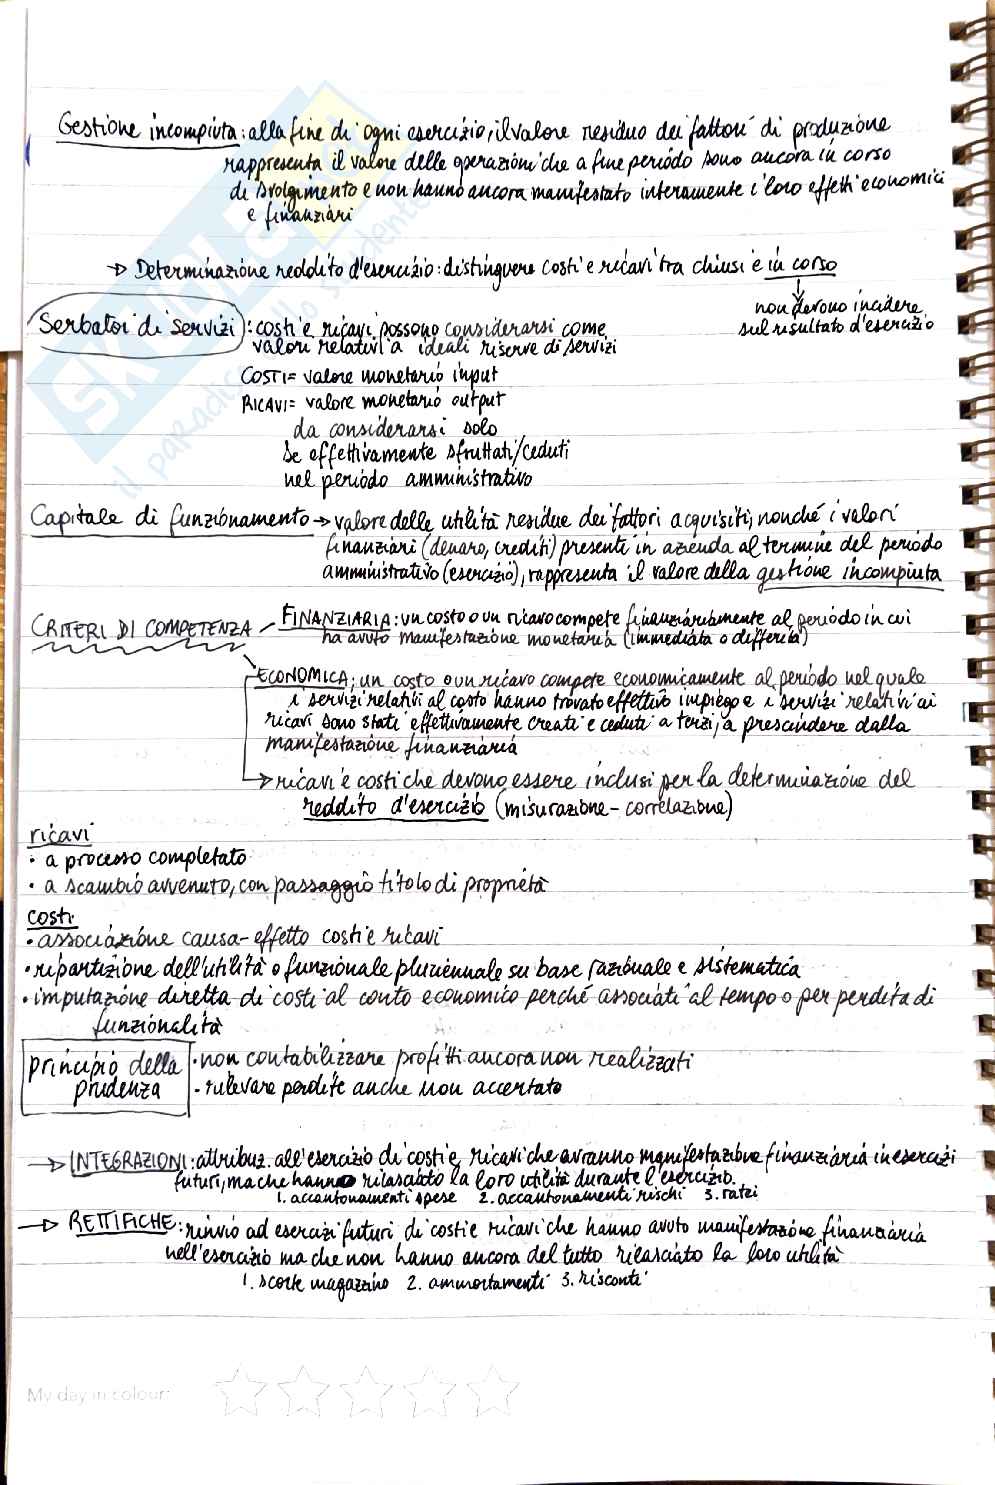 Gestione incompiuta: alla fine di ogni esercizio, il valore residuo dei fattori di produzione
rappresenta il valore delle operazioni che a fine periodo sono ancora in corso
di svolgimento e non hanno ancora manifestato interamente i loro effetti economici
e finanziari
→ Determinazione reddito d'esercizio: distinguere costi e ricavi tra chiusi e in corso
non devono incidere
sul risultato d'esercizio
Serbatoi di servizi: costi e ricavi possono considerarsi come
valori relativi a ideali riserve di servizi
COSTI = valore monetario input
RICAVI = valore monetario output
da considerarsi solo
se effettivamente sfruttati/ceduti
nel periodo amministrativo
Capitale di funzionamento → valore delle utilità residue dei fattori acquisiti, nonché i valori
finanziari (denaro, crediti) presenti in azienda al termine del periodo
amministrativo (esercizio), rappresenta il valore della gestione incompiuta
CRITERI DI COMPETENZA - FINANZIARIA: un costo o un ricavo compete finanziariamente al periodo in cui
ha avuto manifestazione monetaria (immediata o differita)
ECONOMICA: un costo o un ricavo compete economicamente al periodo nel quale
i servizi relativi al costo hanno trovato effettivo impiego e i servizi relativi ai
ricavi sono stati effettivamente creati e ceduti a terzi, a prescindere dalla
manifestazione finanziaria
→ ricavi e costi che devono essere inclusi per la determinazione del
reddito d'esercizio (misurazione - correlazione)
ricavi
• a processo completato
• a scambio avvenuto, con passaggio titolo di proprietà
costi
• associazione causa-effetto costi e ricavi
• ripartizione dell'utilità o funzionale pluriennale su base razionale e sistematica
• imputazione diretta di costi al conto economico perché associati al tempo o per perdita di
funzionalità
principio della
prudenza
• non contabilizzare profitti ancora non realizzati
- rilevare perdite anche non accertate
→ INTEGRAZIONI: attribuz. all'esercizio di costi e ricavi che avranno manifestazione finanziaria in esercizi
futuri, ma che hanno rilasciato la loro utilità durante l'esercizio.
1. accantonamenti spese 2. accantonamenti rischi 3. ratei
→ RETTIFICHE: rinvio ad esercizi futuri di costi e ricavi che hanno avuto manifestazione finanziaria
nell'esercizio ma che non hanno ancora del tutto rilasciato la loro utilità
1. scorte magazzino 2. ammortamenti 3. risconti
My day in colour: